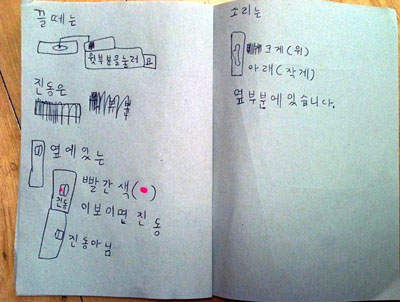 끌때는
윗부분을눌러요
진동은
옆에있는
빨간색(●)
이보이면 진동
진동
진동아님
소리는
크게(위)
아래(작게)
옆부분에있습니다.